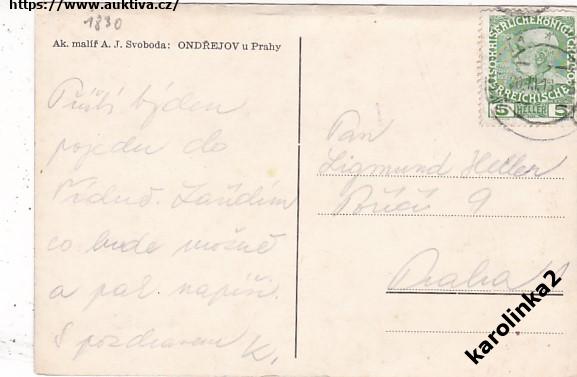 https://www.auktiva.cz/
1830
Ak. malíř A. J. Svoboda: ONDŘEJOV u Prahy
Příští týden
pojedu do
Vídně. Zařídím
co bude možné
a pak napíši.
S pozdravem K.
KAISERLICHE KÖNIGL
ÖSTERREICHISCHE
5 HELLER 5
Pan
Sigmund Heller
9
Praha
karolinka2